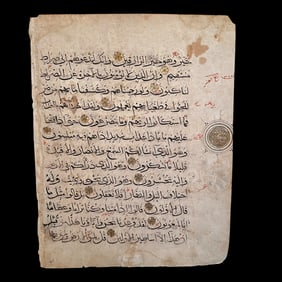 خير وهو خير الرازقين وإنك لتدعوهم إلى صراط
مستقيم وإن الذين لا يؤمنون بالآخرة عن الصراط
لناكبون ولو رحمناهم وكشفنا ما بهم من ضر
للجوا في طغيانهم يعمهون ولقد أخذناهم بالعذاب
فما استكانوا لربهم وما يتضرعون حتى إذا فتحنا
عليهم بابا ذا عذاب شديد إذا هم فيه مبلسون
وهو الذي أنشأ لكم السمع والأبصار والأفئدة
قليلا ما تشكرون وهو الذي ذرأكم في الأرض
وإليه تحشرون وهو الذي يحيي ويميت وله
اختلاف الليل والنهار أفلا تعقلون بل قالوا مثل ما
قال الأولون قالوا أئذا متنا وكنا ترابا وعظاما
أئنا لمبعوثون لقد وعدنا نحن وآباؤنا هذا من قبل
إن هذا إلا أساطير الأولين قل لمن الأرض